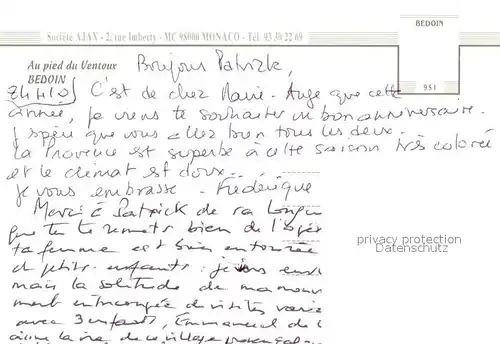 BEDOIN
Société AJAX - 2, rue Imberty - MC 98000 MONACO - Tél. 93 30 22 69
Au pied du Ventoux
BEDOIN
951
Bonjour Patrick,
C'est de chez Marie-Ange que cette
année, je viens te souhaiter un bon anniversaire.
J'espère que vous allez bien tous les deux.
La Provence est superbe à cette saison très colorée
et le climat est doux...
je vous embrasse. Frédérique
Merci à Patrick de sa longue
que tu te remets bien de l'opé
ta femme est bien entourée
et petits-enfants : je
mais la solitude de
ment entrecoupée de visites
avec 3 enfants, Emmanuel de
la vie de ce village provençal
privacy protection
Datenschutz